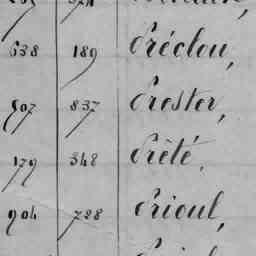 638 189 Préclou,
507 837 Prester,
179 348 Prété,
904 728 Prioul,